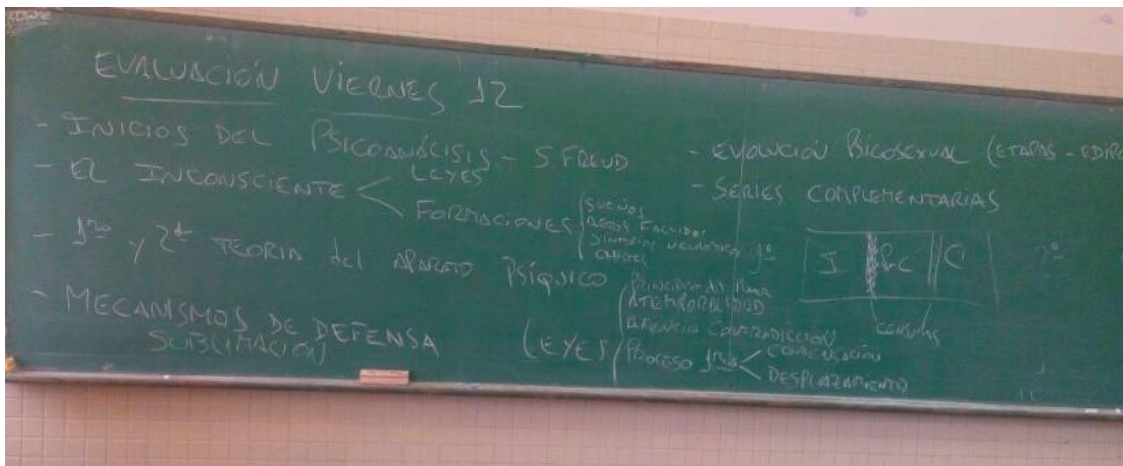 EVALUACIÓN VIERNES 12
- INICIOS DEL PSICOANÁLISIS - S. FREUD
- EL INCONSCIENTE
LEYES
FORMACIONES
SUEÑOS
ACTOS FALLIDOS
SÍNTOMAS NEURÓTICOS
CHISTES
- 1ra y 2da TEORIA del APARATO PSÍQUICO
- MECANISMOS DE DEFENSA
SUBLIMACIÓN
LEYES
PRINCIPIO del
ATEMPORALIDAD
CONTRADICCIÓN
PROCESO 1rio
CONDENSACIÓN
DESPLAZAMIENTO
- EVOLUCIÓN PSICOSEXUAL (ETAPAS - EDIPO
- SERIES COMPLEMENTARIAS
1º
I PreC C
2º
CENSURAS